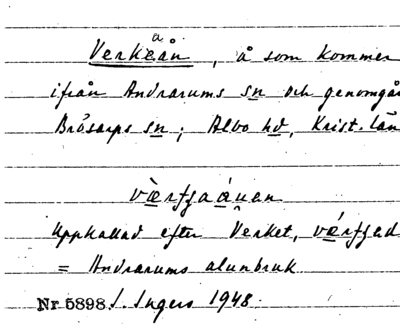 Verkeån, å som kommer
ifrån Andrarums sn och genomgår
Brösarps sn; Albo hd, Krist. län
uppkallad efter Verket,
= Andrarums alunbruk
Nr 5898. I. Ingers 1948.